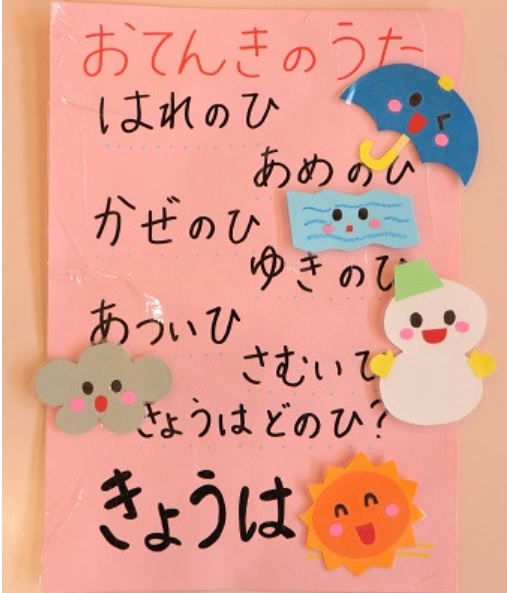 おてんきのうた
はれのひ
あめのひ
かぜのひ
ゆきのひ
あついひ
さむいひ
きょうはどのひ?
きょうは